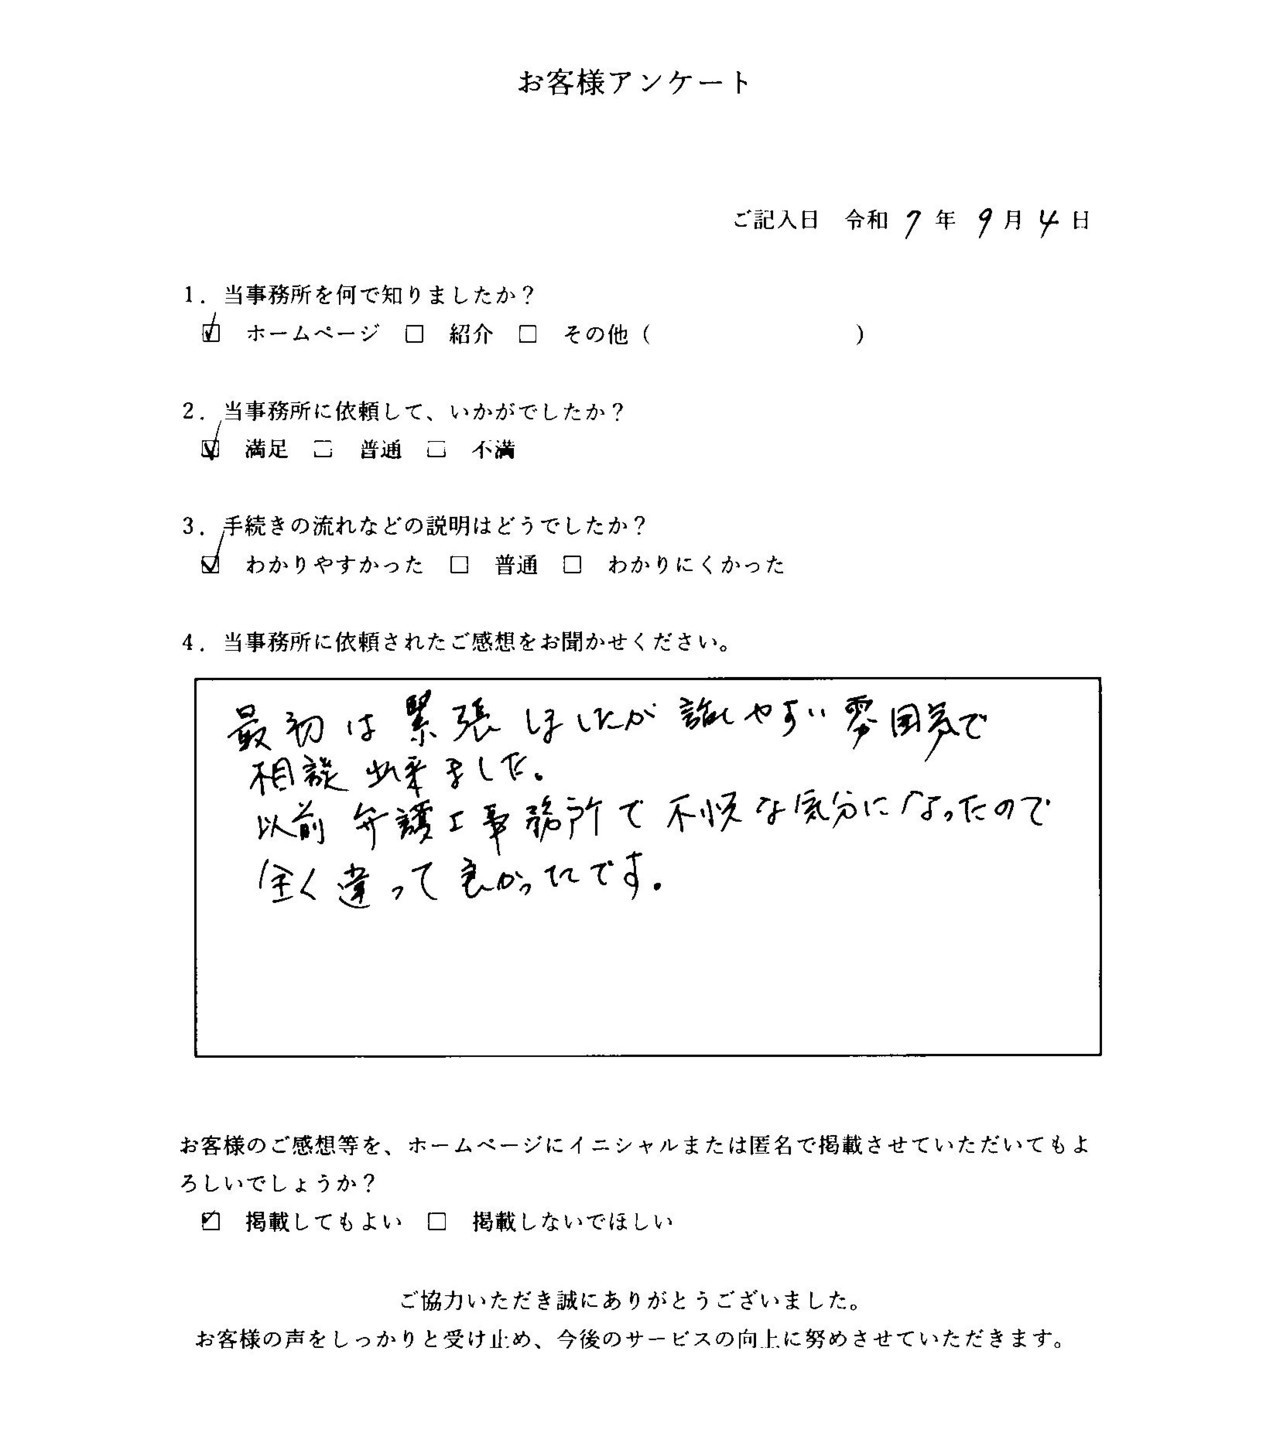 お客様アンケート
ご記入日 令和 7 年 9 月 4 日
1．当事務所を何で知りましたか？
☑ ホームページ □ 紹介 □ その他（ ）
2．当事務所に依頼して、いかがでしたか？
☑ 満足 □ 普通 □ 不満
3．手続きの流れなどの説明はどうでしたか？
☑ わかりやすかった □ 普通 □ わかりにくかった
4．当事務所に依頼されたご感想をお聞かせください。
最初は緊張しましたが話しやすい雰囲気で
相談出来ました。
以前弁護士事務所で不快な気分になったので
全く違って良かったです。
お客様のご感想等を、ホームページにイニシャルまたは匿名で掲載させていただいてもよ
ろしいでしょうか？
☑ 掲載してもよい □ 掲載しないでほしい
ご協力いただき誠にありがとうございました。
お客様の声をしっかりと受け止め、今後のサービスの向上に努めさせていただきます。